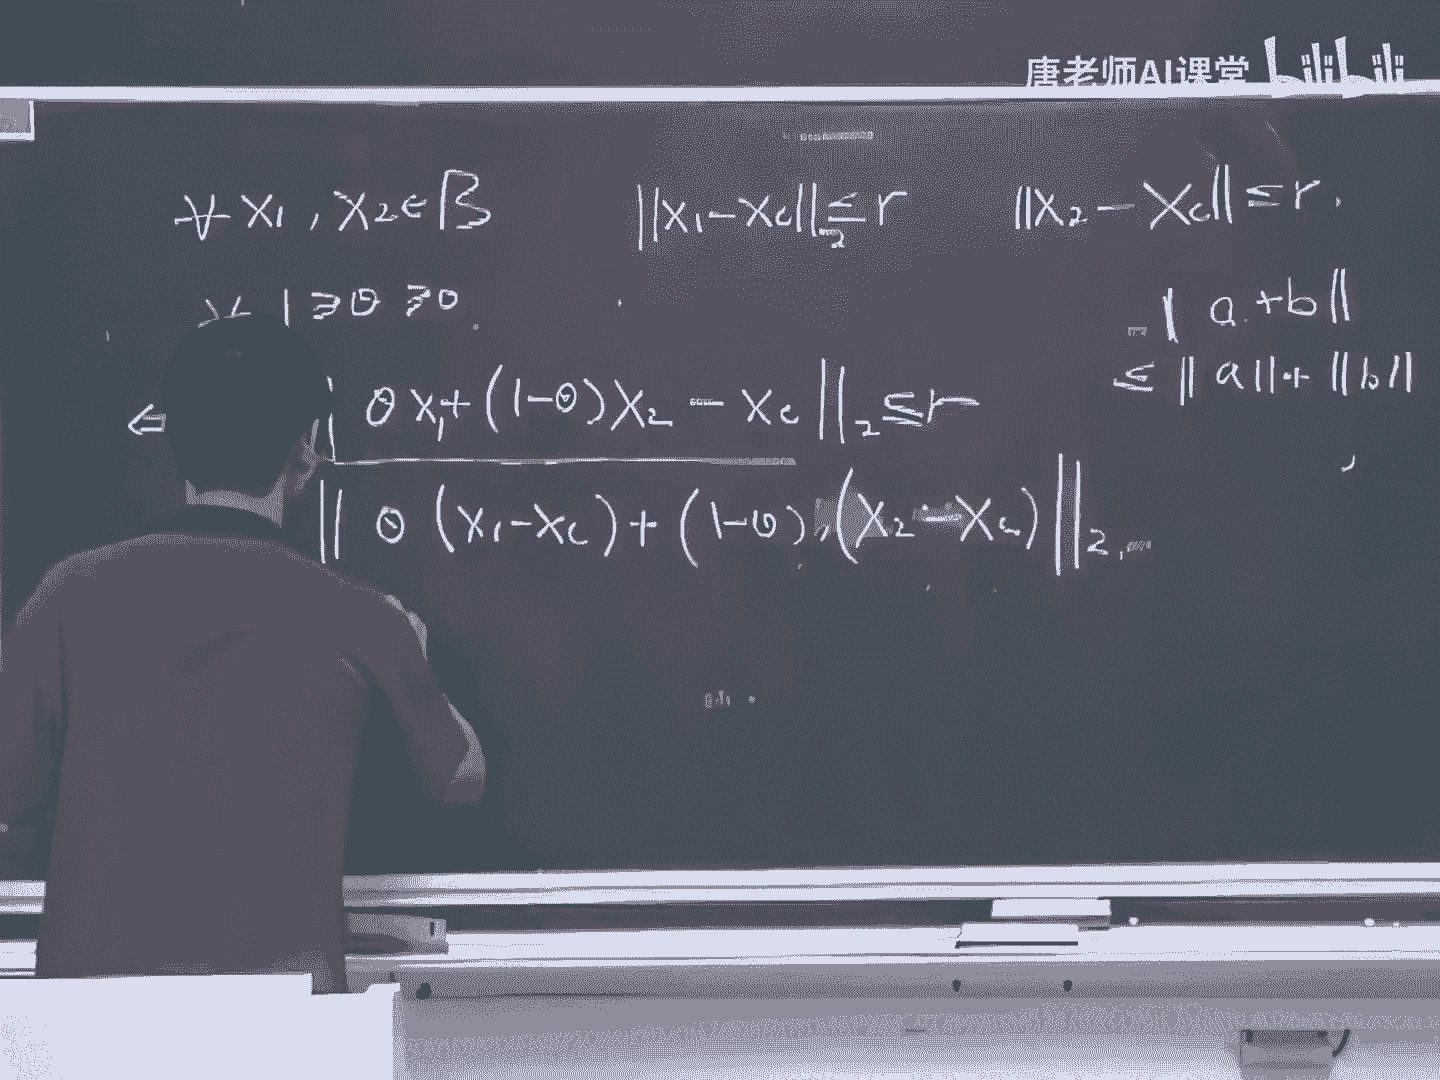 唐老师AI课堂 bilibili
∀ x₁, x₂ ∈ B ‖x₁ - x_c‖₂ ≤ r ‖x₂ - x_c‖ ≤ r.
∀ 1 ≥ θ ≥ 0
‖ a + b ‖
≤ ‖ a ‖ + ‖ b ‖
⇐ ‖ θ x₁ + (1-θ) x₂ - x_c ‖₂ ≤ r
‖ θ (x₁ - x_c) + (1-θ) (x₂ - x_c) ‖₂